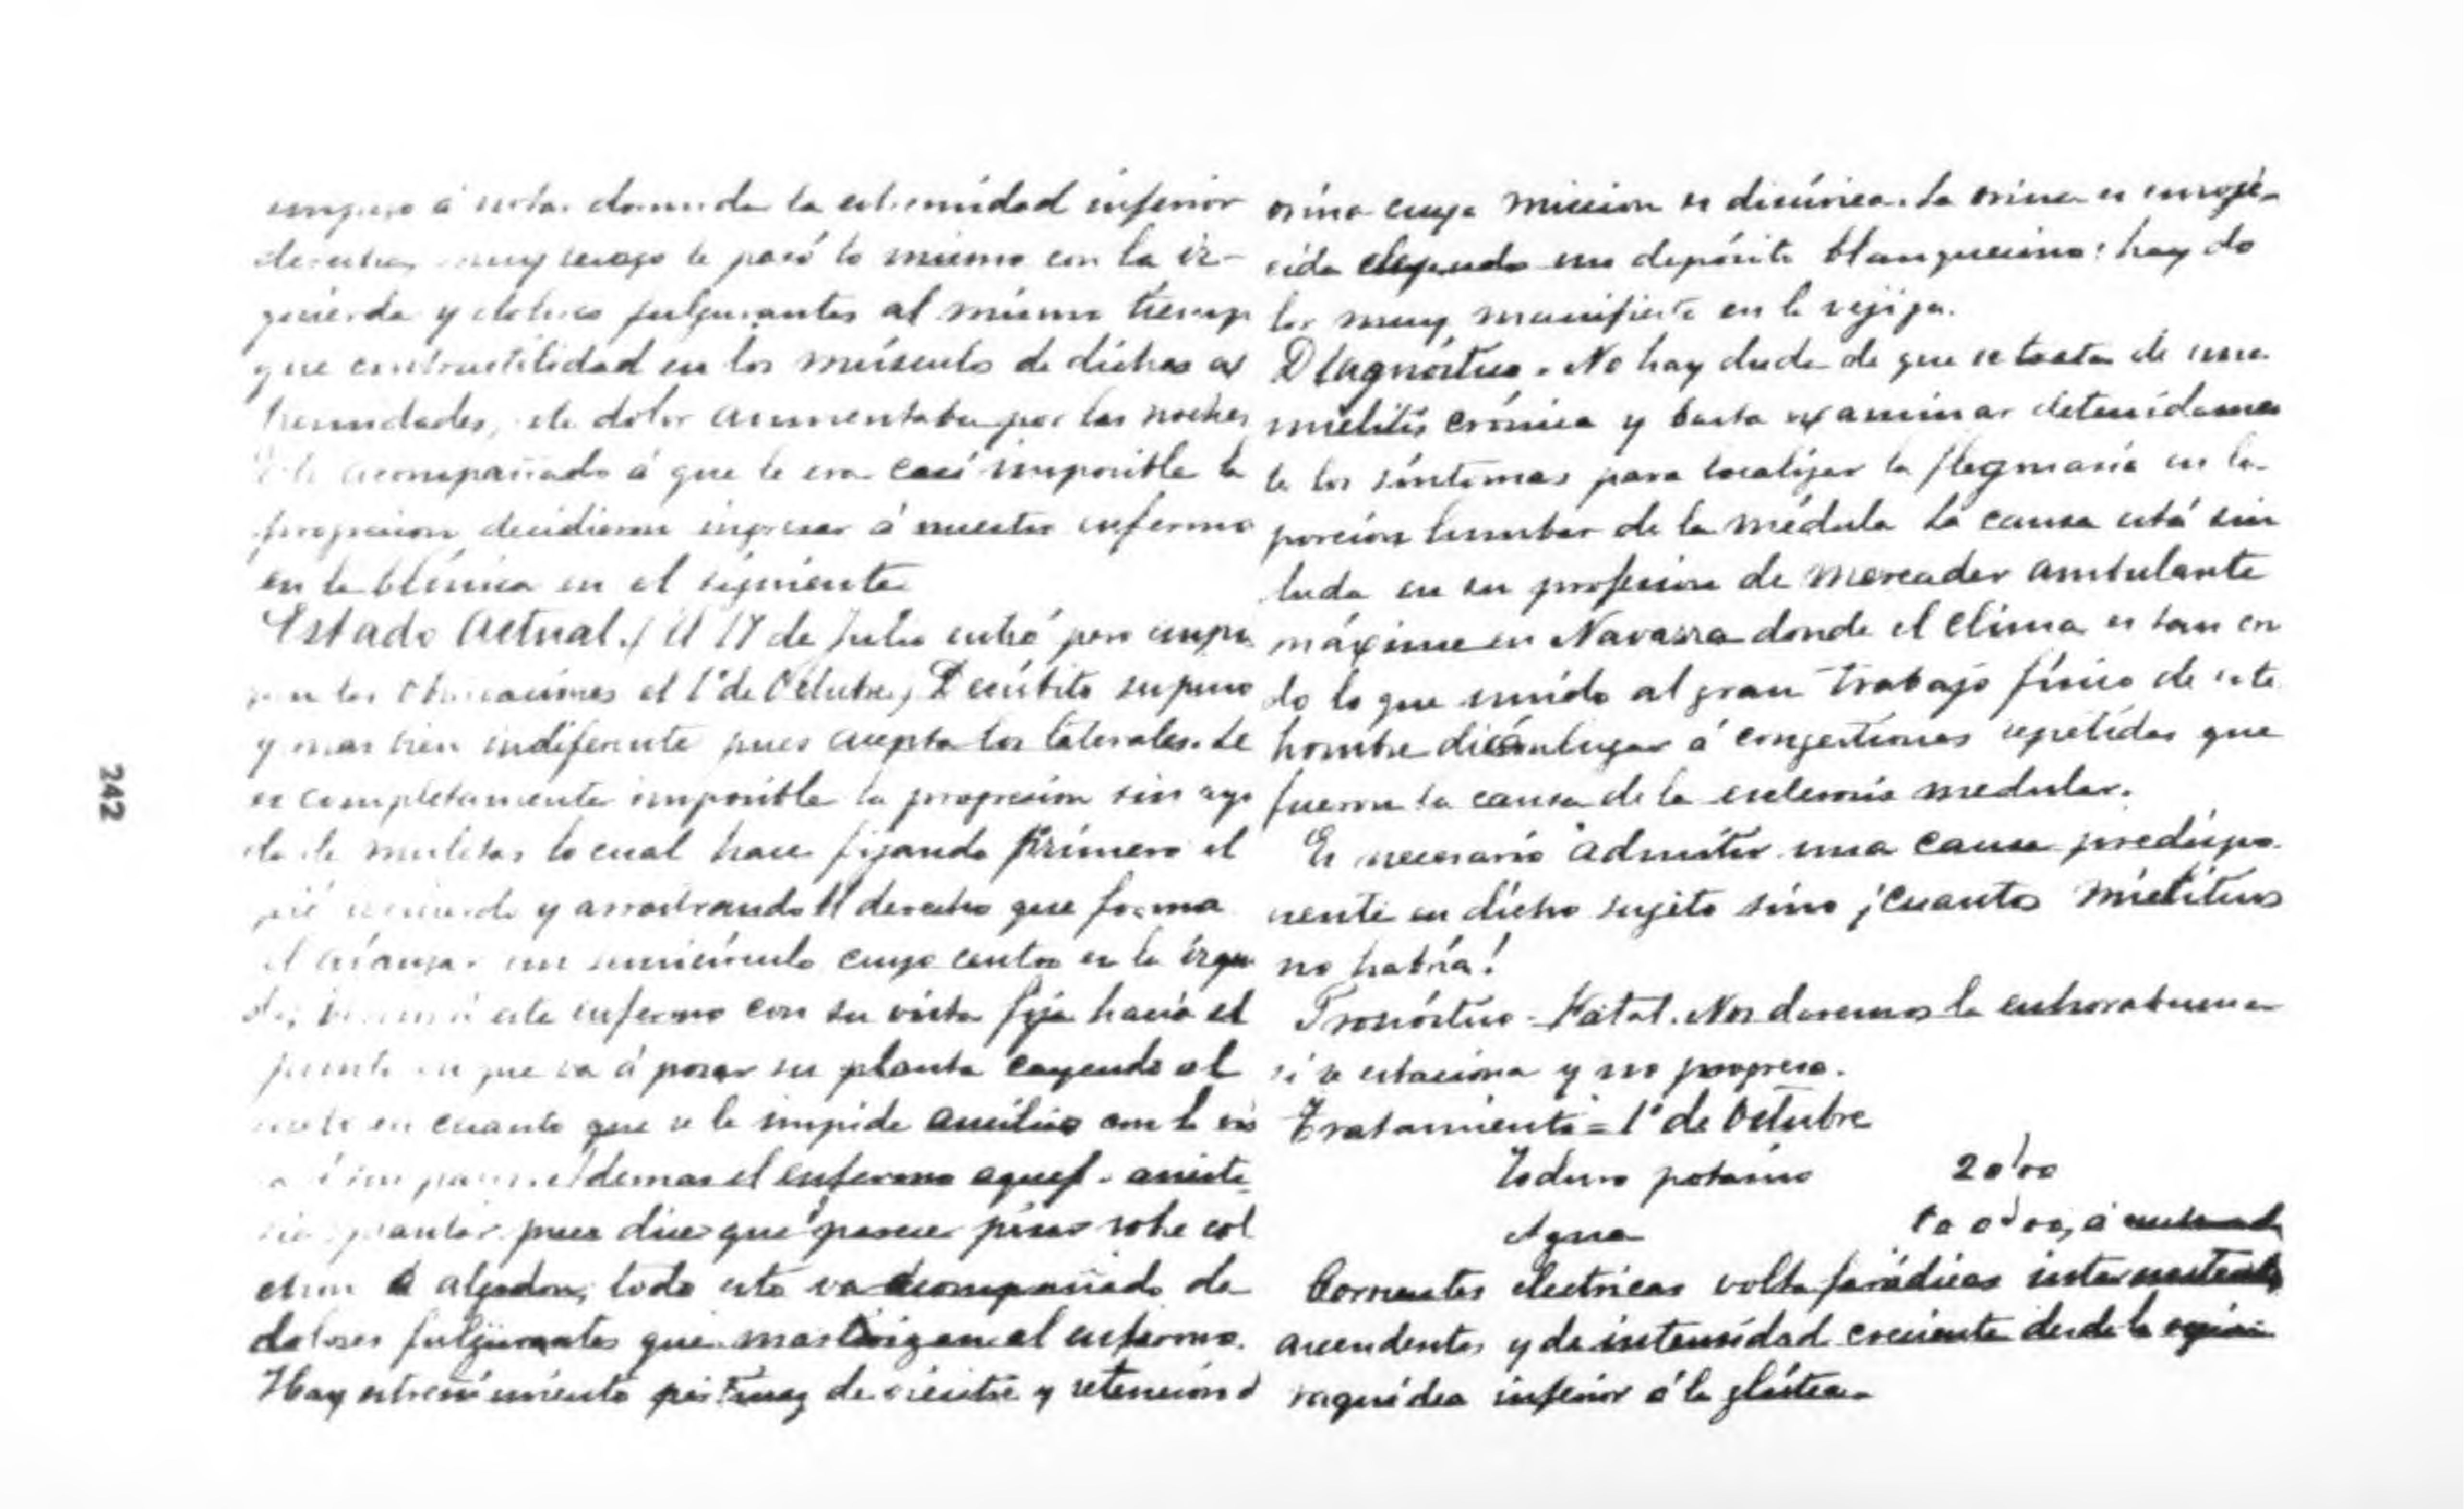 empezó á notar dormida la extremidad inferior
derecha, muy luego le pasó lo mismo con la iz-
quierda y dolores fulgurantes al mismo tiemp
que contractilidad en los músculos de dichas ex
tremidades, este dolor aumentaba por las noches
acompañado á que le era casi imposible la
progresion decidieron ingresar á nuestro enfermo
en la Clínica en el siguiente
Estado Actual./ El 17 de Julio entró pero empe
las observaciones el 1º de Octubre, Decúbito supino
y mas bien indiferente pues acepta los laterales. Le
es completamente imposible la progresión sin ayu
da de muletas lo cual hace fijando primero el
pié izquierdo y arrastrando el derecho que forma
al avanzar un semicírculo cuyo centro es la izqu
este enfermo con su vista fija hacia el
punto en que va á posar su planta cayendo al
suelo en cuanto que se le impide auxilio con la vis
demas el enfermo aquej. aneste
plantar pues dice que parece pisar sobre col
chon ó algodon, todo esto va acompañado de
dolores fulgurantes que martirizan al enfermo.
Hay estreñimiento pertinaz de vientre y retención d
orina cuya miccion es disúrica. La orina es enroje-
cida dejando un depósito blanquecino: hay do
lor muy manifiesto en la vejiga.
Diagnóstico. No hay duda de que se trata de una
mielitis crónica y basta examinar detenidamen
te los síntomas para localizar la flegmasía en la
porción lumbar de la médula La causa está sin
duda en su profesion de mercader ambulante
máxime en Navarra donde el clima es tan cru
do lo que unido al gran trabajo físico de este
hombre dieron lugar á congestiones repetidas que
fueron la causa de la esclerosis medular.
Es necesario admitir una causa predispo
nente en dicho sujeto sino ¡Cuantos mielíticos
no habría!
Pronóstico - Fatal. Nos daremos la enhorabuena
si se estaciona y no progresa.
Tratamiento = 1º de Octubre
Ioduro potasico 20'00
Agua
Corrientes electricas volta farádicas
ascendentes y de intensidad creciente desde la
raquídea inferior á la glútea